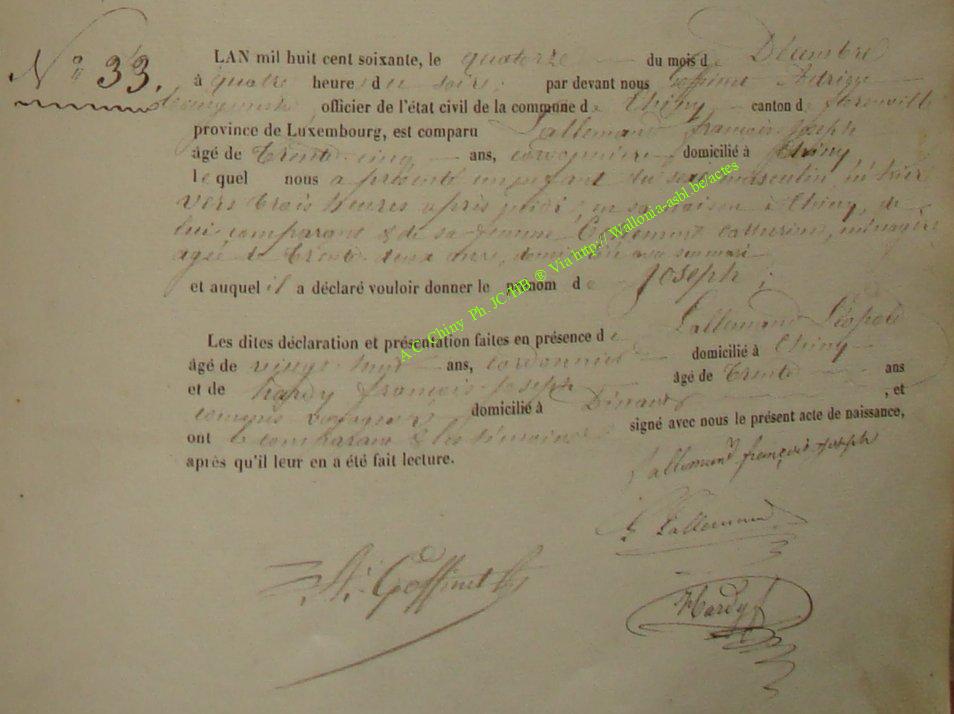 N° 33.
LAN mil huit cent soixante, le quatorze du mois de Décembre
à quatre heures du soir, par devant nous Goffinet
officier de l'état civil de la commune de Chiny canton de florenville
province de Luxembourg, est comparu Lallemand françois-Joseph
âgé de trente cinq ans, cordonnier domicilié à Chiny
lequel nous a présenté un enfant du sexe masculin, né hier
vers trois heures après midi, en sa maison à Chiny, de
lui comparant & de sa femme Catherine, ménagère
agée de trente deux ans,
et auquel il a déclaré vouloir donner le prénom de Joseph ;
Les dites déclaration et présentation faites en présence de Lallemand Léopold
âgé de vingt huit ans, cordonnier domicilié à Chiny
et de hardy francois-Joseph âgé de trente ans
commis voyageur domicilié à Dinant , et
ont le comparant & les témoins signé avec nous le présent acte de naissance,
après qu'il leur en a été fait lecture.
Lallemand françois Joseph
L Lallemand
A. Goffinet
Hardy
A.C. Chiny Ph. JC/HB ® Via http://Wallonia-asbl.be/actes